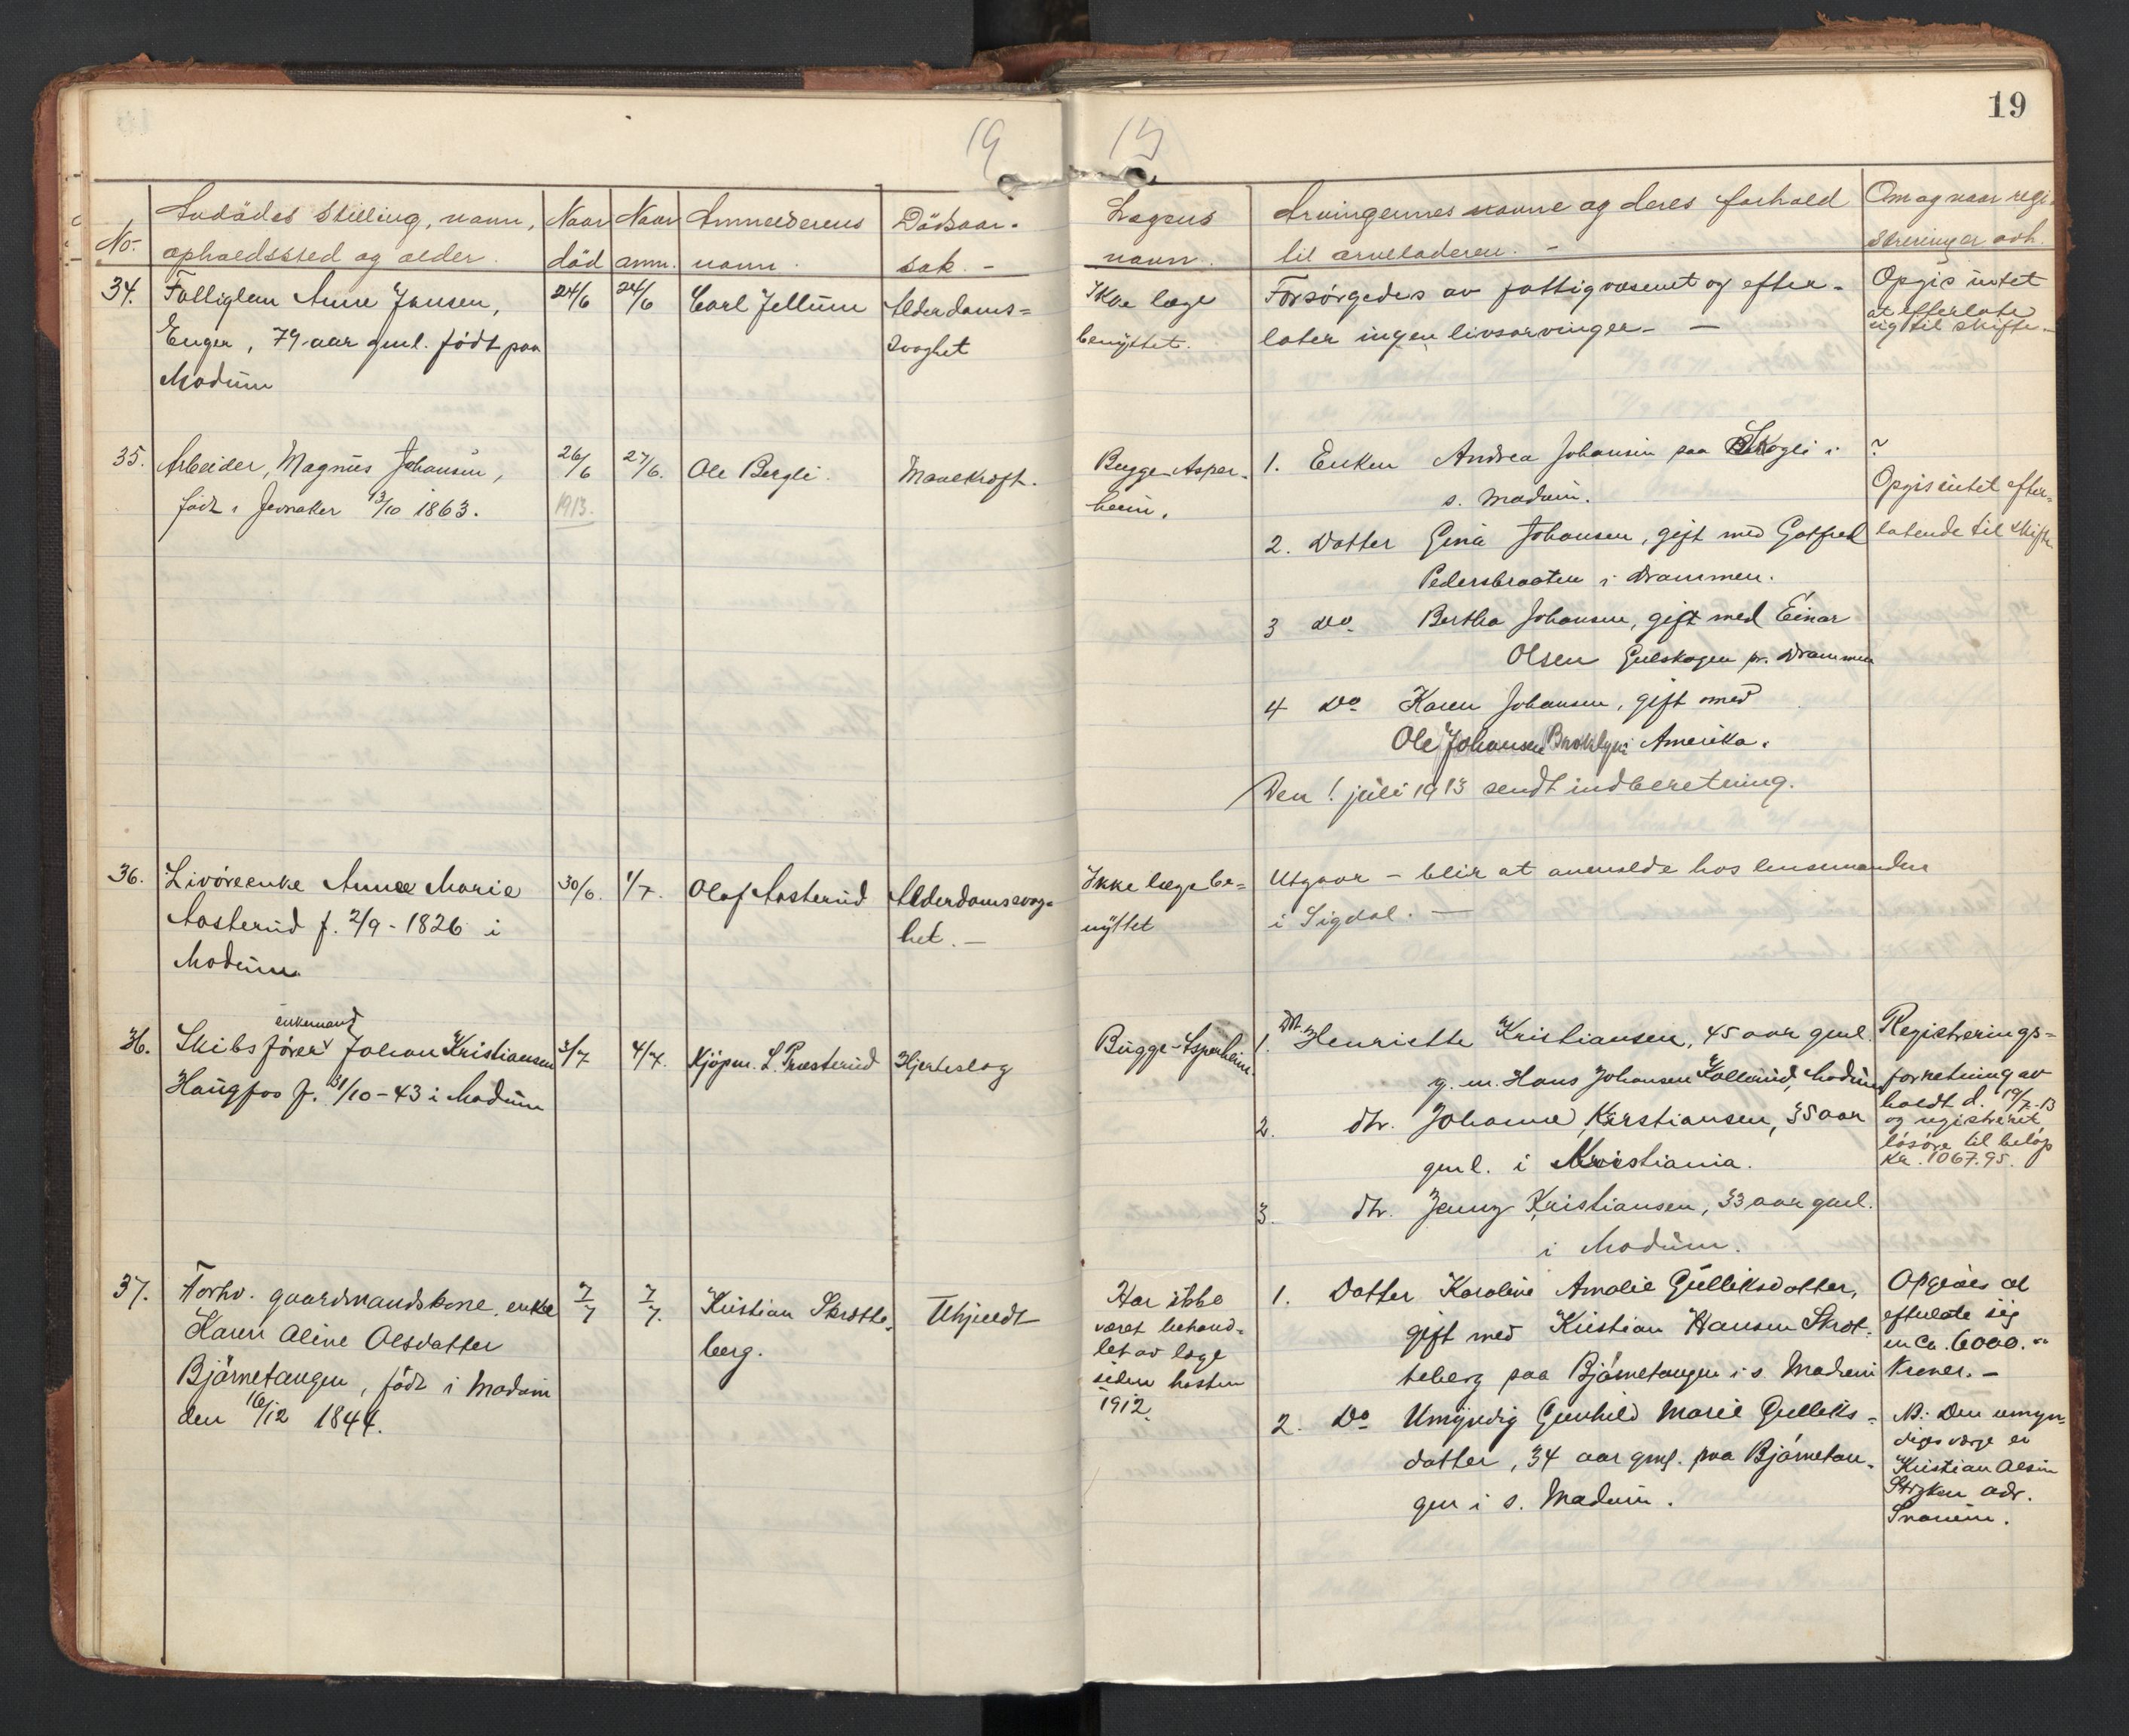 19
19
15
No.
Avdødes stilling, navn,
opholdssted og alder.
Naar
død
Naar
anm.
Anmelderens
navn.
Dødsaar-
sak. -
Lægens
navn.
Arvingernes navne og deres forhold
til arveladeren. -
Om og naar regi-
streringer avh.
34.
Fattiglem Anne Jansen,
Enger, 79 aar gml. født paa
Modum
24/6
24/6
Carl Jellum
Alderdoms=
svaghet
Ikke læge
benyttet.
Forsørgedes av fattigvæsenet og efter-
later ingen livsarvinger. -
Opgis intet
at efterlate
sig til skifte.
35.
Arbeider, Magnus Johansen,
født i Jevnaker 13/10 1863.
26/6
1913.
27/6.
Ole Bergli.
Mavekræft.
Bugge-Asper-
heim.
1. Enken Andrea Johansen paa Skogli i
s. Modum.
2. Datter Gina Johansen, gift med Gotfred
Pedersbraaten i Drammen.
3 do. Bertha Johansen, gift med Einar
Olsen Gulskogen pr. Drammen
4 do Karen Johansen, gift med
Ole Johansen Brooklyn i Amerika.
Den 1. juli 1913 sendt indberetning.
?
Opgis intet efter-
latende til skifte.
36.
Livøreenke Anne Marie
Aasterud f. 2/9 - 1826 i
Modum.
30/6.
1/7.
Olaf Aasterud
Alderdomssvag-
het. -
Ikke læge be=
nyttet
Utgaar - blir at anmelde hos lensmanden
i Sigdal. -
36.
enkemand
Skibsfører Johan Kristiansen
Haugfos f. 31/10 - 43 i Modum
3/7
4/7.
Kjøpm. L. Præsterud
Hjerteslag
Bugge-Asperheim.
1. Dtr. Henriette Kristiansen, 45 aar gml.
g. m. Hans Johansen Kollerud, Modum
2. dtr. Johanne Kristiansen, 35 aar
gml. i Kristiania.
3. dtr. Jenny Kristiansen, 33 aar gml.
i Modum.
Registrerings-
forretning av
holdt d. 19/7-13
og registreret
løsøre til beløp
Kr. 1067.95.
37.
Forhv. gaardmandskone, enke
Karen Aline Olsdatter
Bjørnetangen, født i Modum
den 16/12 1844.
7/7
7/7.
Kristian Skrotte-
berg.
Uhjeldt
Har ikke
været behand-
let av læge
siden høsten
1912.
1. Datter Karoline Amalie Gulliksdatter,
gift med Kristian Hansen Skrot-
teberg paa Bjørnetangen i s. Modum
2. Do Umyndig Gunhild Marie Gulliks-
datter, 34 aar gml. paa Bjørnetan-
gen i s. Modum.
Opgives at
efterlate sig
en ca. 6000. "
kroner. -
NB: Den umyn-
diges værge er
Kristian Olsen
Stryken adr.
Snarum.